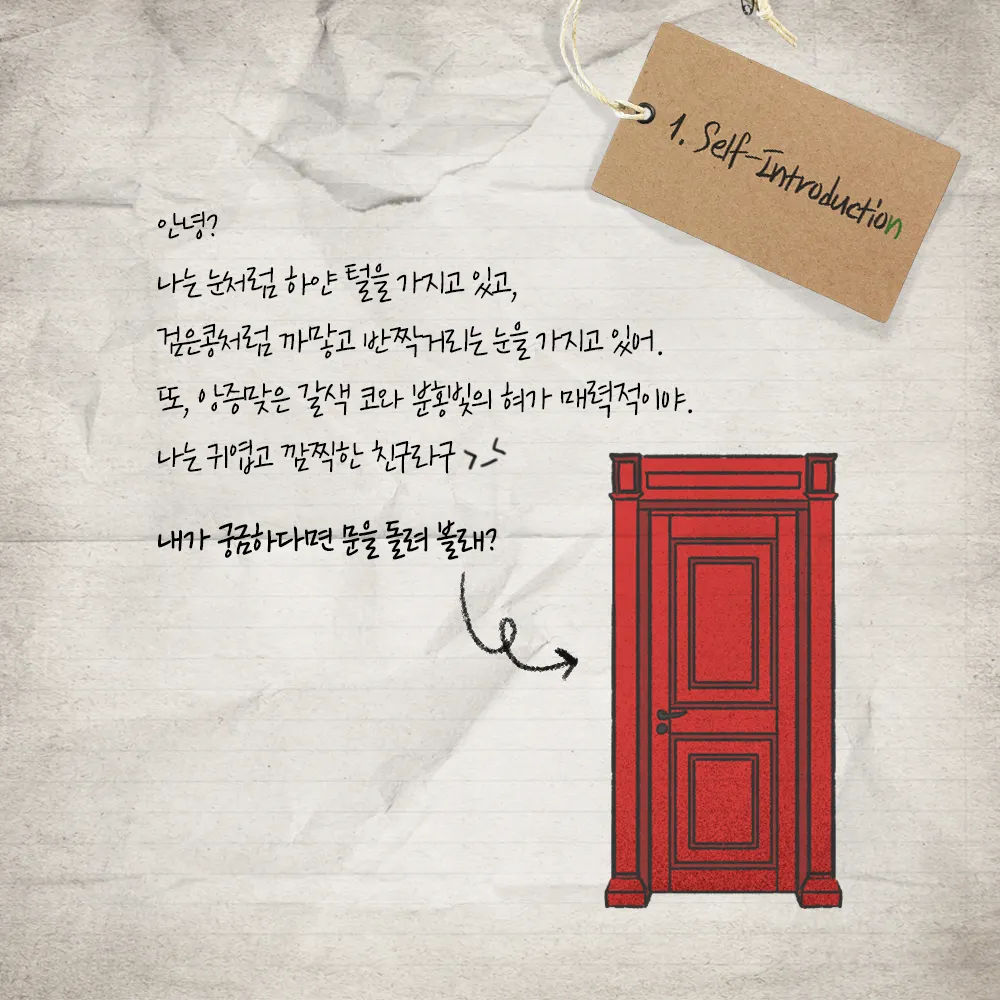 1. Self-Introduction
안녕?
나는 눈처럼 하얀 털을 가지고 있고,
검은콩처럼 까맣고 반짝거리는 눈을 가지고 있어.
또, 앙증맞은 갈색 코와 분홍빛의 혀가 매력적이야.
나는 귀엽고 깜찍한 친구라구 >_<
내가 궁금하다면 문을 돌려 볼래?